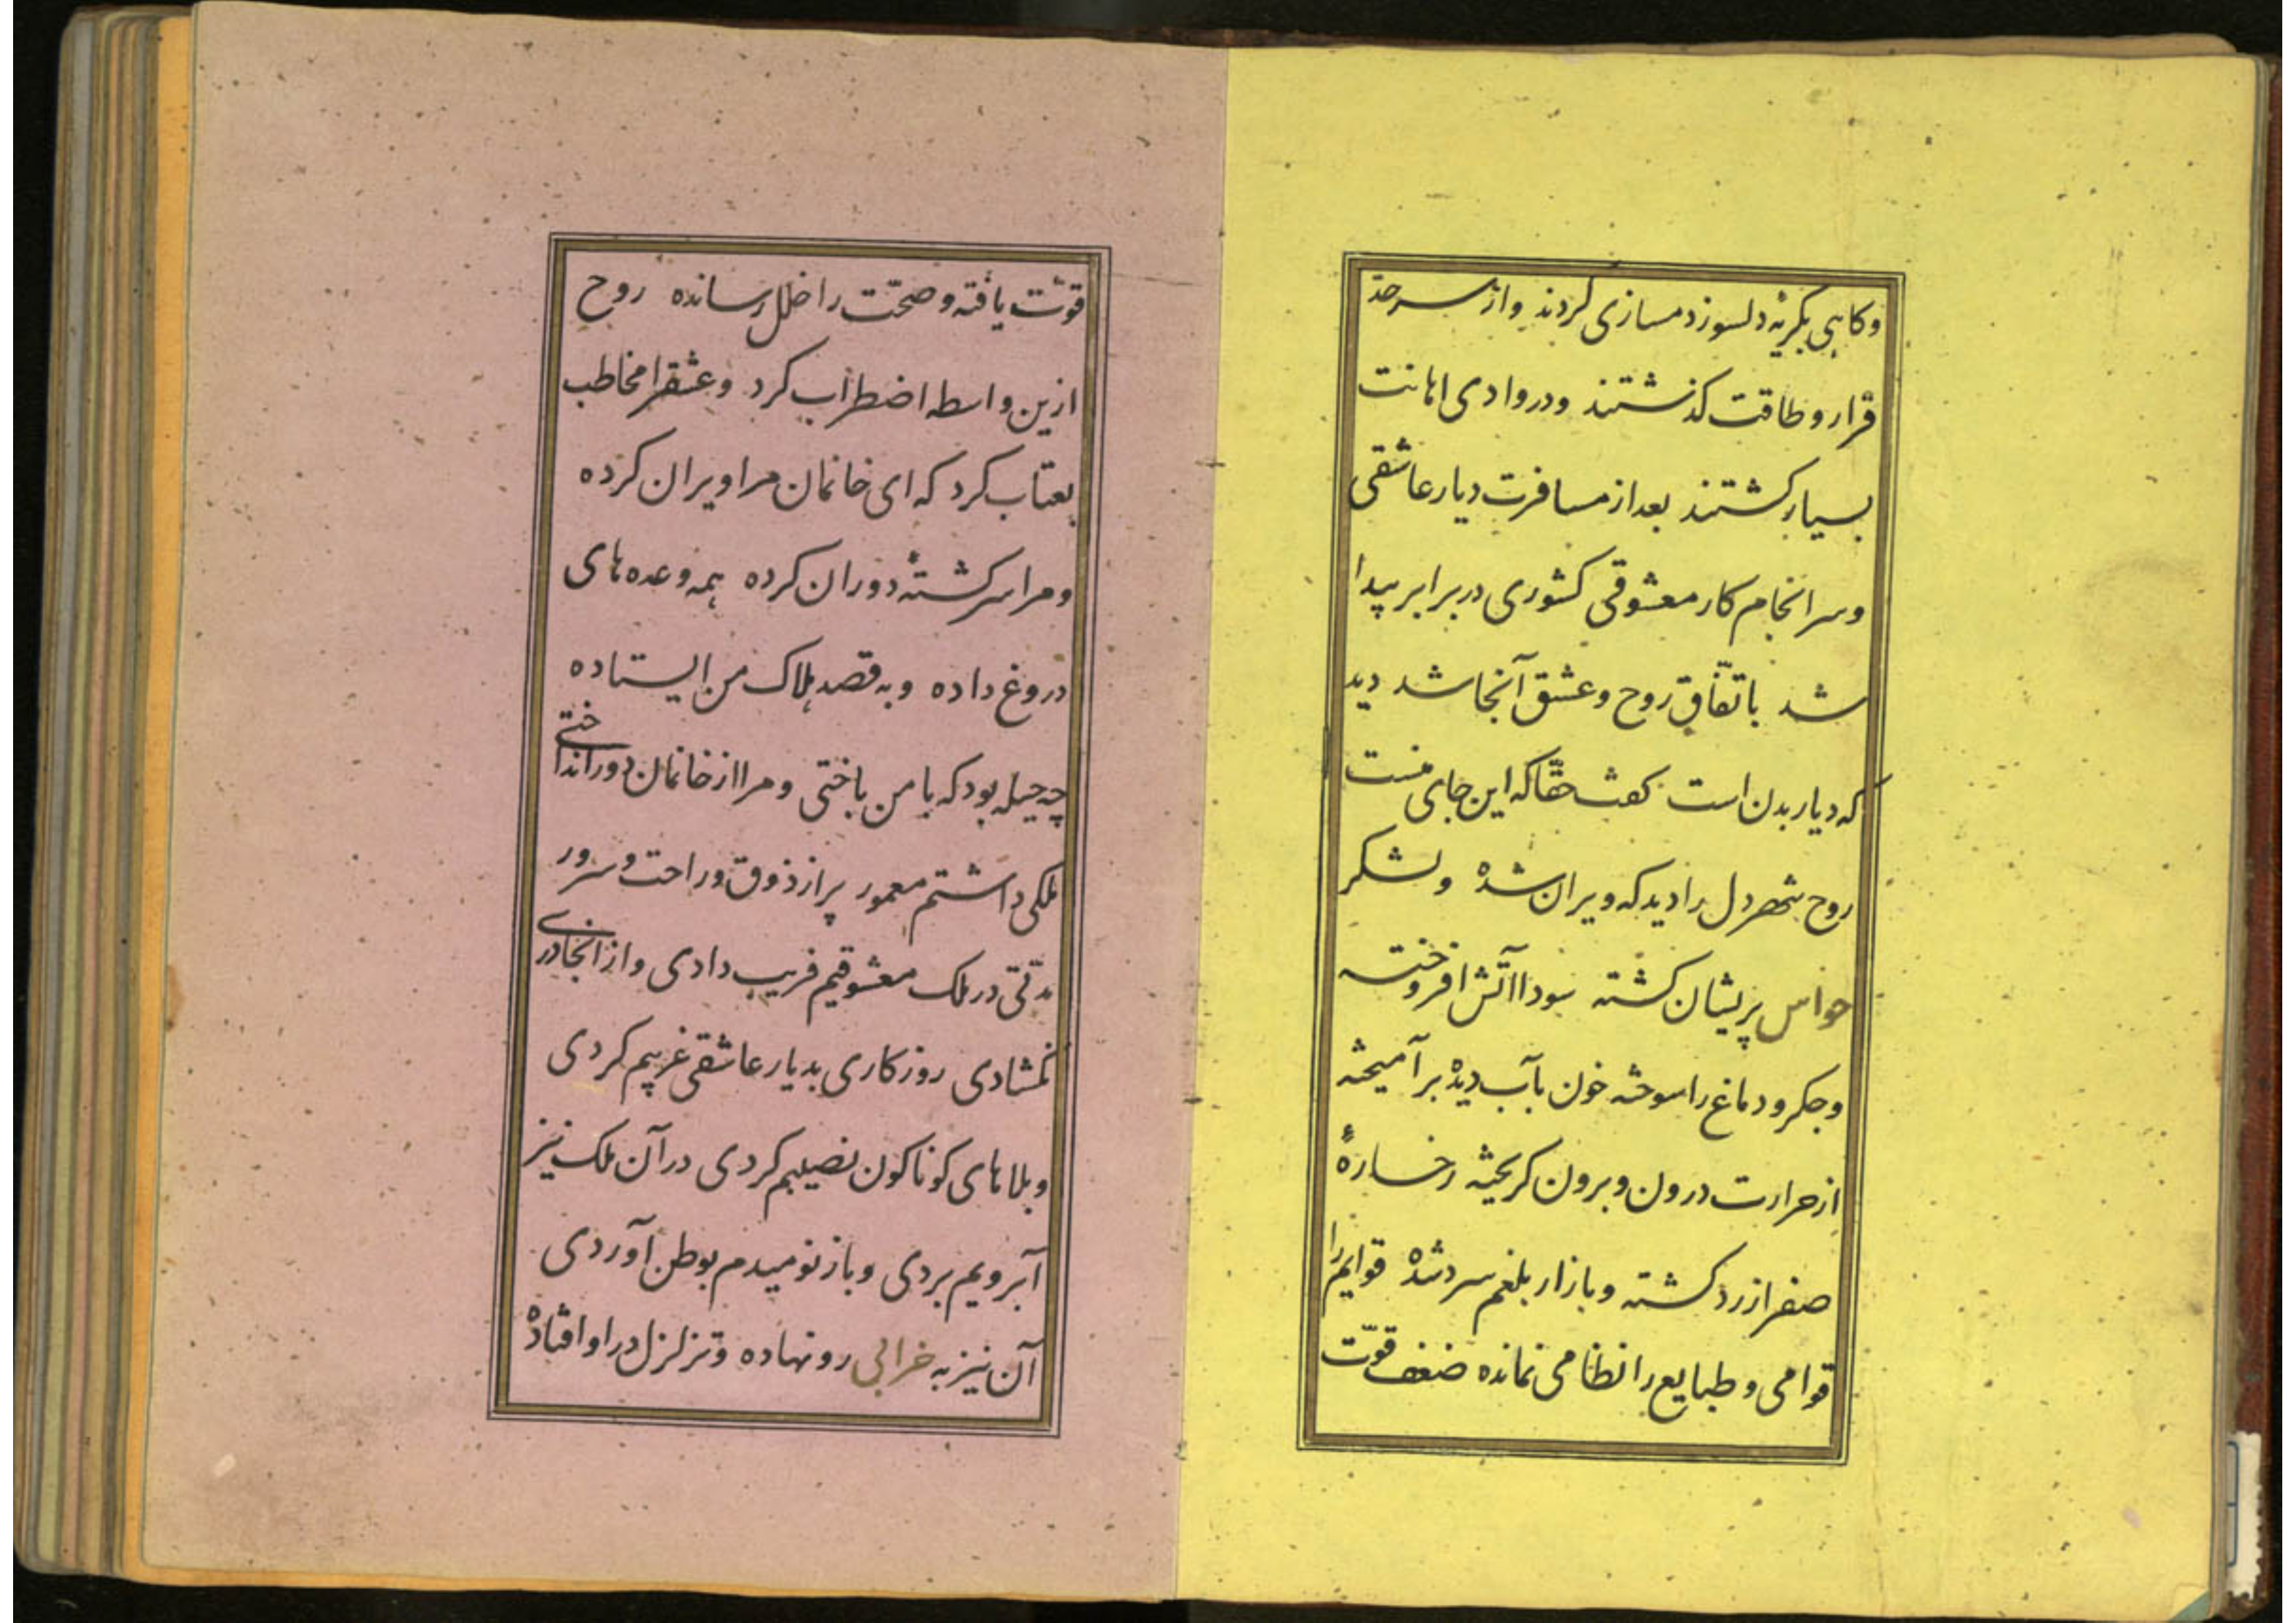 و کاهی بگریهٔ دلسوز دمسازی کردند واز سرحدّ
قرار و طاقت کذشتند ودر وادی اهانت
بسیار کشتند بعد از مسافرت دیار عاشقی
وسرانجام کار معشوقی کشوری در برابر پیدا
شد باتفّاق روح وعشق آنجا شد دید
که دیار بدن است کفت حقّاکه این جای منست
روح شهر دل را دید که ویران شده ولشکر
حواس پریشان کشته سودا آتش افروخته
وجکر ودماغ را سوخته خون بآب دیده برآمیخته
از حرارت درون وبرون کریخته رخسارهٔ
صفرا زرد کشته وبازار بلغم سرد شده قوایم را
قوامی و طبایع را نظامی نمانده ضعف قوّت
قوّت یافته وصحّت را خلل رسانده روح
ازین واسطه اضطراب کرد وعشقرا مخاطب
بعتاب کرد که ای خانمان مرا ویران کرده
ومرا سرکشتهٔ دوران کرده همه وعده های
دروغ داده وبه قصد هلاک من ایستاده
چه حیله بود که با من باختی ومرا از خانمان دور انداختی
ملکی داشتم معمور پر از ذوق وراحت وسرور
مدّتی در ملک معشوقیم فریب دادی واز انجا دری
نکشادی روزکاری بدیار عاشقی غریبم کردی
وبلاهای کوناکون نصیبم کردی در آن ملک نیز
آبرویم بردی وباز نومیدم بوطن آوردی
آن نیز به خرابی رو نهاده وتزلزل در او افتاده